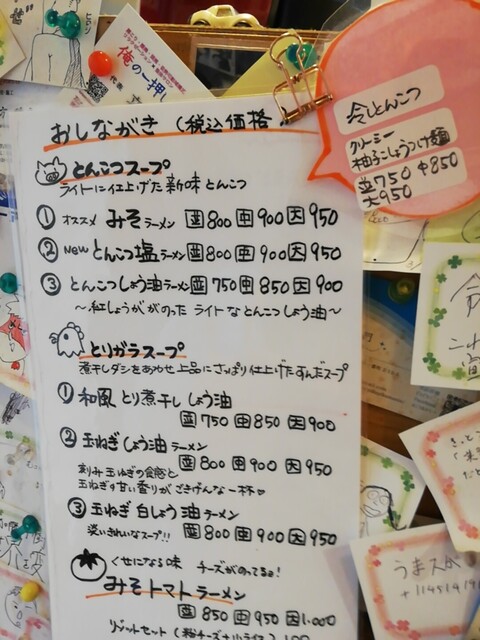 俺の一押し
代表
おしながき (税込価格
とんこつスープ
ライトに仕上げた新味とんこつ
① オススメ みそラーメン 並800 中900 大950
② New とんこつ塩ラーメン 並800 中900 大950
③ とんこつしょう油ラーメン 並750 中850 大900
～紅しょうががのった ライトなとんこつしょう油～
とりガラスープ
煮干しダシをあわせ上品にさっぱり仕上げたすんだスープ
① 和風 とり煮干し しょう油
並750 中850 大900
② 玉ねぎ しょう油ラーメン
並800 中900 大950
刻み玉ねぎの食感と
玉ねぎの甘い香りがごきげんな一杯♡
③ 玉ねぎ 白しょう油ラーメン
淡いきれいなスープ!! 並800 中900 大950
くせになる味 チーズがのってるよ!
みそトマトラーメン
並850 中950 大1.000
リゾットセット (粉チーズ+小ライス) 100
冷しとんこつ
クリーミー
柚子こしょうつけ麺
並750 中850
大950
うまスハ